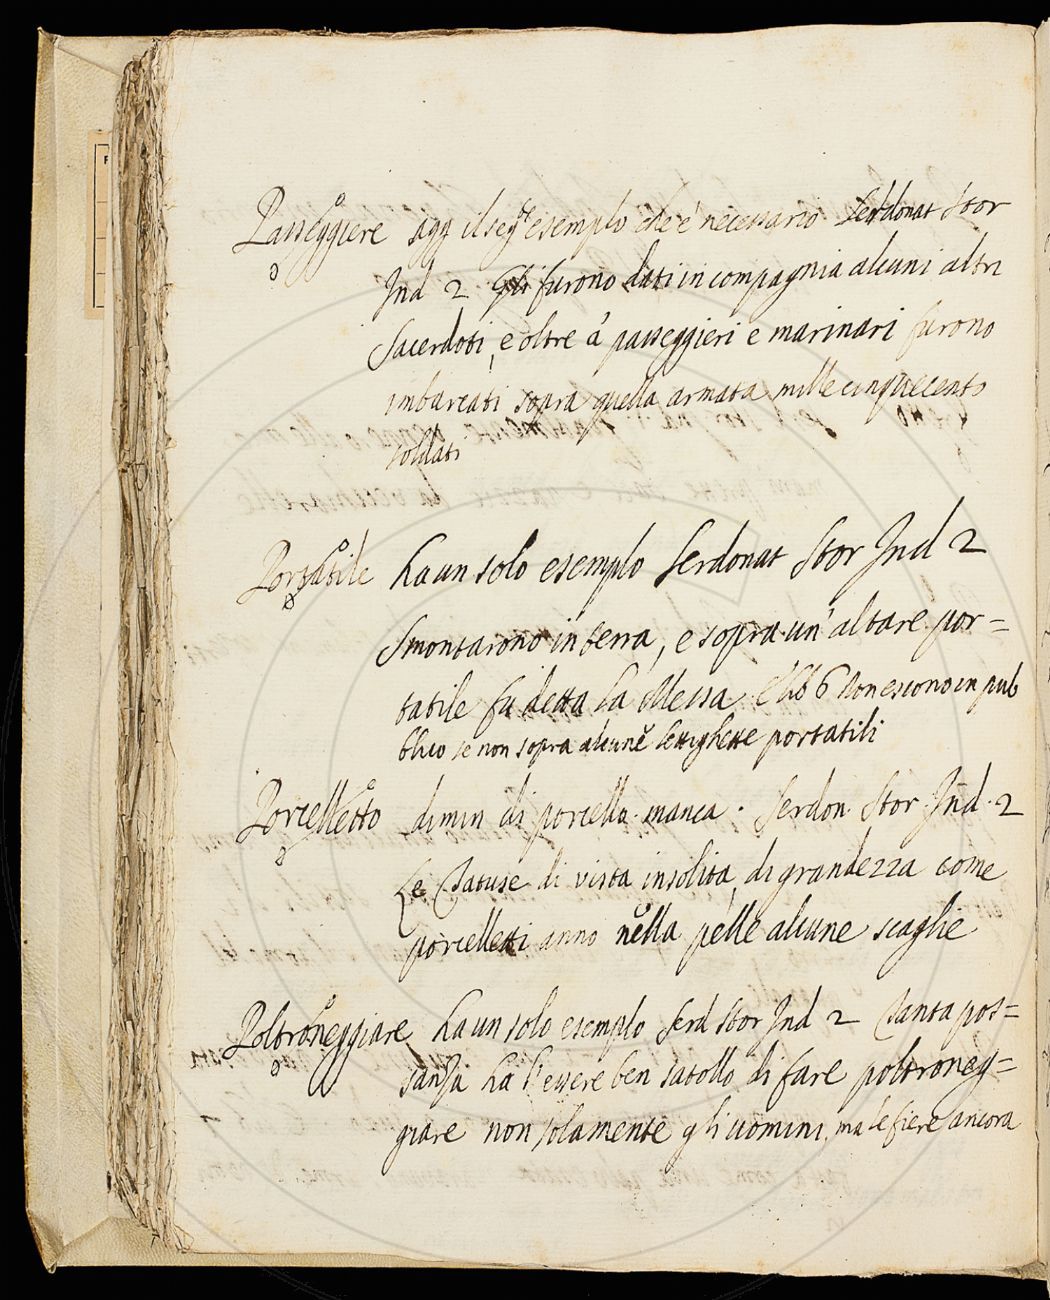 Passeggiere agg il segte esempio che è necessario Serdonat Stor
Ind 2 Gli furono dati in compagnia alcuni altri
Sacerdoti, e oltre a' passeggieri e marinari furono
imbarcati sopra quella armata mille cinquecento
soldati
Portatile ha un solo esemplo Serdonat Stor Ind 2
Smontarono in terra, e sopra un' altare por=
tatile fu detta la Messa. E lib 6 Non escono in pub
blico se non sopra alcune lettighette portatili
Porcelletto dimin di porcello manca. Serdon. Stor. Ind. 2
Le Tatuse di vista insolita di grandezza come
porcelletti anno nella pelle alcune scaglie
Poltroneggiare ha un solo esemplo Serd Stor Ind 2 Tanta pos=
sanza ha l'essere ben satollo di fare poltroneg=
giare non solamente gli uomini, ma le fiere ancora